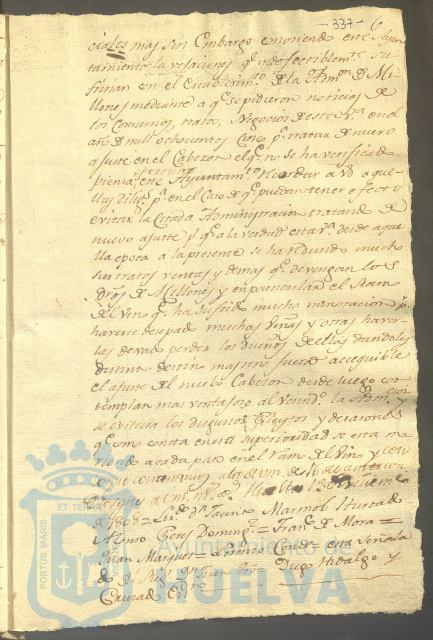 -337- 6
ciales mas sin Embargo conoviendo este Ayun
tamiento las vejaciones qe. indefectiblemte. su
friran con el establecimto. de la Admon. de Mi
llones mediante a qe. se pidieron noticias de
los Consumos, tratos, Negocios de esta Va. en el
año de mil ochocientos Cinco pa. tratar de nuevo
ajuste en el Cabezon el qe. no se ha verificado
piensa este Ayuntamto. recordar a VS aque
llas dilijs. pa. en el Caso de qe. puedan tener efecto
evitar la Citada Administracion tratando de
nuevo ajuste pr. qe. a la verdad esta Va. desde aque
lla epoca a la presente se han reducido mucho
sus tratos ventas y demas qe. devengan los
dros de Millones y en particular el Ramo
del vino qe. ha sufrido mucha minoracion pr.
haverse desepado muchas viñas y otras haver
las dexado perder los dueños de ellas dandoles
distinto destino mas si no fuera accequible
el ajuste del nuevo Cabezon desde luego con
templan mas ventajoso al vecindo. la Admcion. y
se evitara los disputos y desazones
qe. como consta en esta superioridad se esta
a cada paso en el Ramo del vino y
de 16 de
Dios gue. a VS ms. as. Huelva 12 de
de 1808 = Lic. Dn. Jacinto Marmol Hurtado
Alonso Perez Doming. = Franco. de Mora =
Juan Marquez = Antonio Conde = esta señala
do del Rexr. Dn. Juan = Diego Hidalgo y
Ayuntamiento de
HUELVA
PORTUS MARIS
ET TERRAE